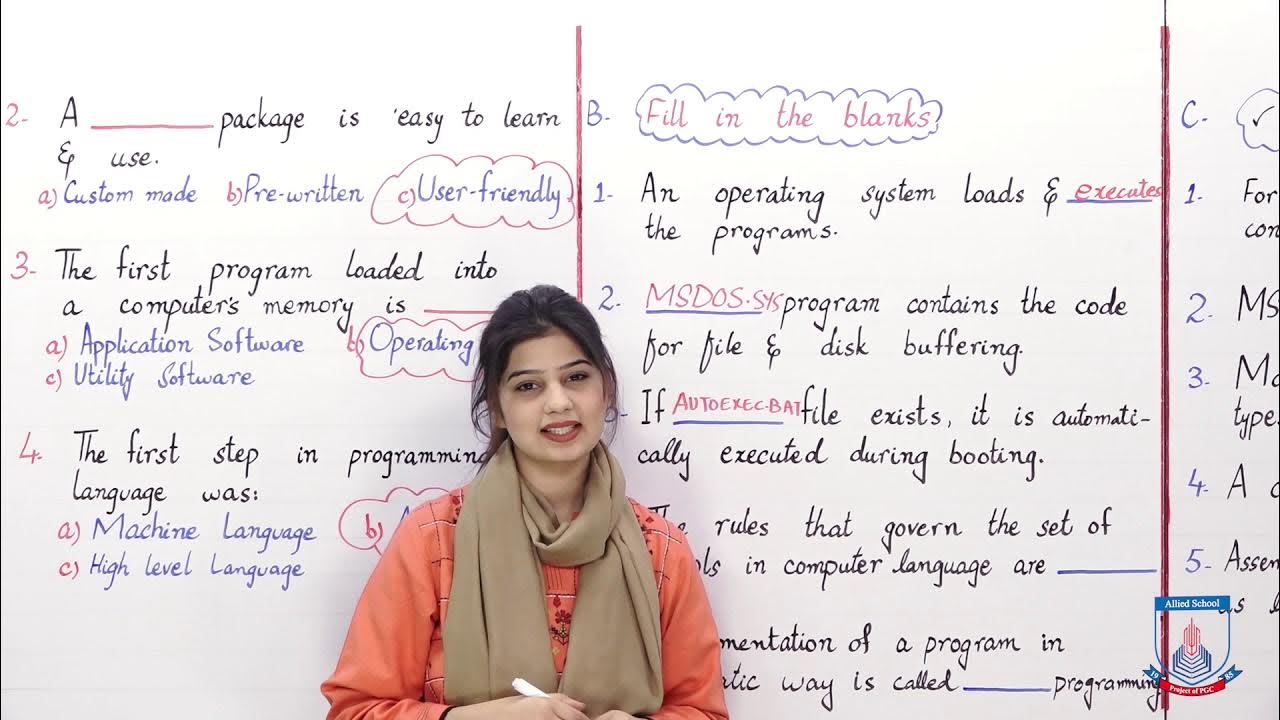 2- A ______ package is easy to learn
& use.
a) Custom made b) Pre-written c) User-friendly
3- The first program loaded into
a computer's memory is ______
a) Application Software b) Operating
c) Utility Software
4. The first step in programming
language was:
a) Machine Language b)
c) High level Language
B- Fill in the blanks
1- An operating system loads & executes
the programs.
2. MSDOS.SYS program contains the code
for file & disk buffering.
If AUTOEXEC.BAT file exists, it is automati-
cally executed during booting.
The rules that govern the set of
in computer language are ______
of a program in
way is called ______ programming
C.
✓
1. For
con
2- MS
3. Ma
type
4. A
5- Assem
as
Allied School
1985
Project of PGC